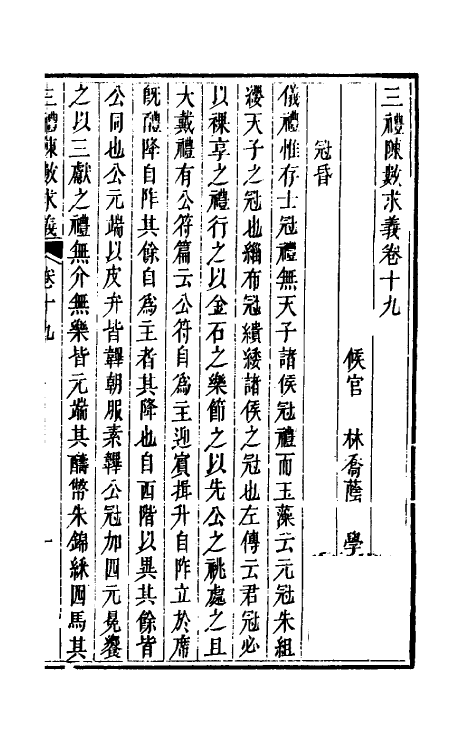 三禮陳數求義卷十九
候官　林喬蔭　學
冠昏
儀禮惟存士冠禮無天子諸侯冠禮而玉藻云元冠朱組
纓天子之冠也緇布冠繢緌諸侯之冠也左傳云君冠必
以祼享之禮行之以金石之樂節之以先公之祧處之且
大戴禮有公符篇云公符自爲主迎賓揖升自阼立於席
旣醴降自阼其餘自爲主者其降也自西階以異其餘皆
公同也公元端以皮弁皆韠朝服素韠公冠加四元冕饗
之以三獻之禮無介無樂皆元端其酬幣朱錦綵四馬其
三禮陳數求義
卷十九
一